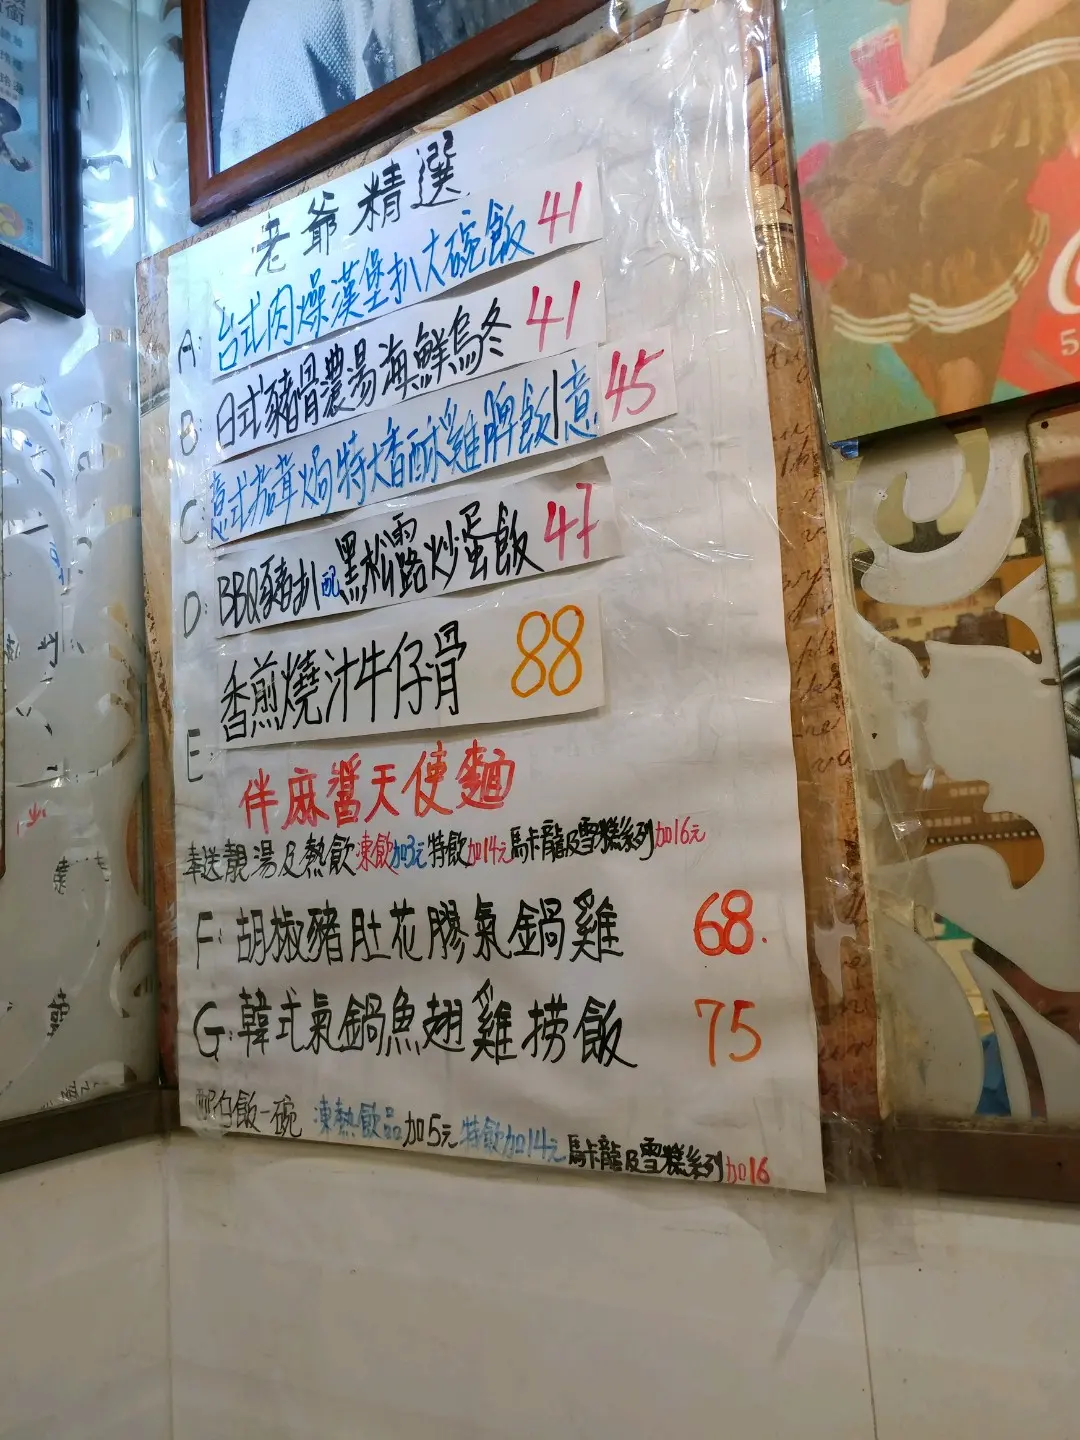 老爺精選
A: 台式肉燥漢堡扒大碗飯 41
B: 日式豬骨濃湯海鮮烏冬 41
C: 意式茄茸焗特大香酥雞脾飯/意 45
D: BBQ豬扒配黑松露炒蛋飯 47
E: 香煎燒汁牛仔骨 88
伴麻醬天使麵
奉送靚湯及熱飲凍飲加3元特飲加14元馬卡龍及雪糕系列加16元
F: 胡椒豬肚花膠氣鍋雞 68.
G: 韓式氣鍋魚翅雞撈飯 75
配白飯一碗 凍熱飲品加5元特飲加14元馬卡龍及雪糕系列加16